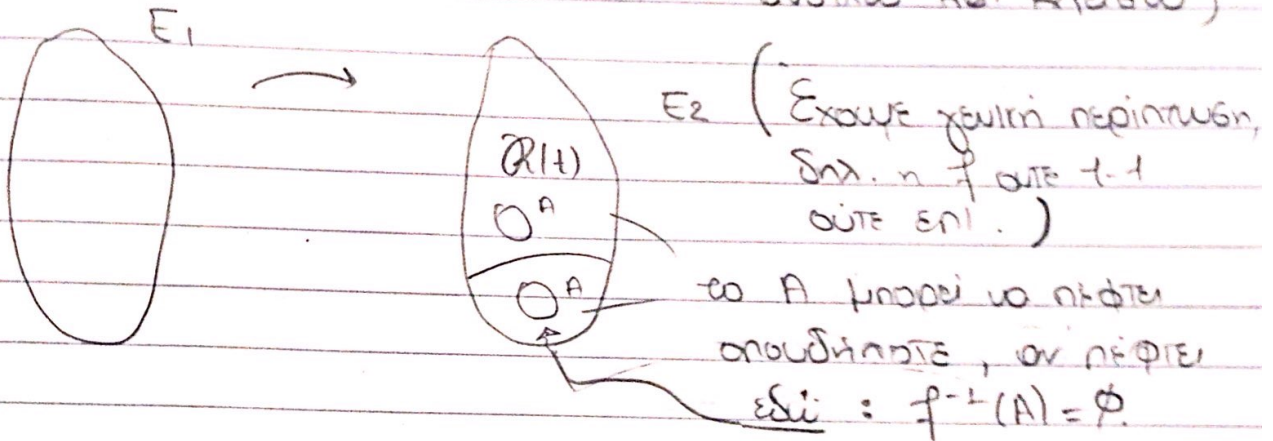 E₁
E₂ (Έχουμε γενική περίπτωση,
δηλ. η f ούτε 1-1
ούτε επί.)
R(f)
A
A
το A μπορεί να πέφτει
οπουδήποτε, αν πέφτει
εδώ : f⁻¹(A) = ∅.